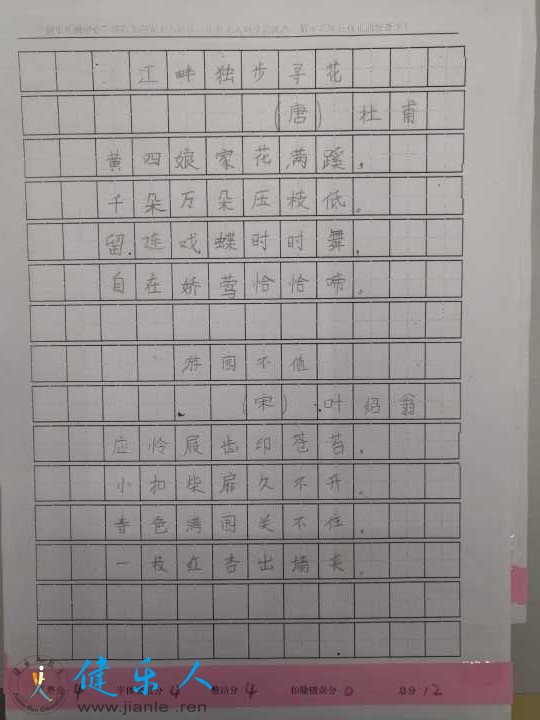 江畔独步寻花
（唐） 杜甫
黄四娘家花满蹊，
千朵万朵压枝低。
留连戏蝶时时舞，
自在娇莺恰恰啼。
游园不值
（宋） 叶绍翁
应怜屐齿印苍苔，
小扣柴扉久不开。
春色满园关不住，
一枝红杏出墙来。
4 4 整洁分 4 扣除错误分 0 总分 12
健乐人
www.jianle.ren